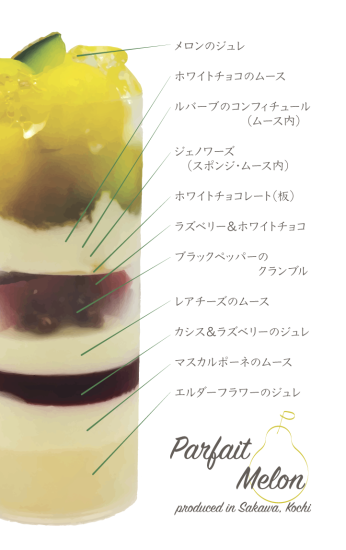 メロンのジュレ
ホワイトチョコのムース
ルバーブのコンフィチュール
（ムース内）
ジェノワーズ
（スポンジ・ムース内）
ホワイトチョコレート（板）
ラズベリー＆ホワイトチョコ
ブラックペッパーの
クランブル
レアチーズのムース
カシス＆ラズベリーのジュレ
マスカルポーネのムース
エルダーフラワーのジュレ
Parfait
Melon
produced in Sakawa, Kochi